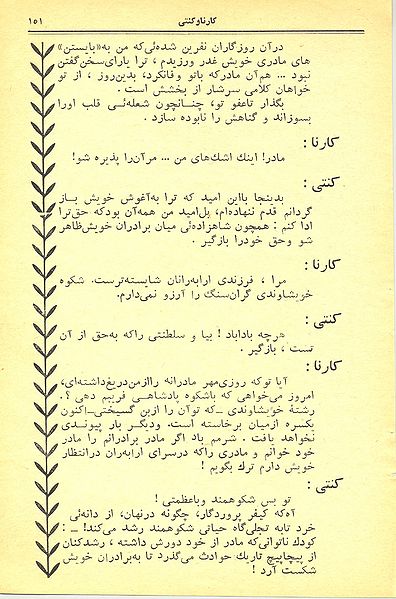 کارناوکنتی
۱۵۱
درآن روزگاران نفرین شده‌ئی‌که من به«بایستن»
های مادری خویش غدر ورزیدم ، ترا یارای‌سخن‌گفتن
نبود ... هم‌آن مادرکه باتو وفانکرد، بدین‌روز ، از تو
خواهان کلامی سرشار از بخشش است .
بگذار تاعفو تو، چنانچون شعله‌ئی قلب اورا
بسوزاند و گناهش را نابوده سازد .
کارنا :
مادر! اینك اشك‌های من ... مرآن‌را پذیره شو!
کنتی :
بدینجا بااین امید که ترا به‌آغوش خویش بـاز
گردانم قدم ننهاده‌ام، بل‌امید من همه‌آن بودکه حق‌ترا
ادا کنم : همچون شاهزاده‌ئی میان برادران خویش‌ظاهر
شو وحق خودرا بازگیر .
کارنا :
مرا ، فرزندی ارابه‌رانان شایسته‌ترست. شکوه
خویشاوندی گران‌سنگ را آرزو نمی‌دارم.
کنتی :
هرچه باداباد ! بیا و سلطنتی راکه به‌حق از آن
تست ، بازگیر .
کارنا :
آیا توکه روزی‌مهر مادرانه راازمن‌دریغ‌داشته‌ای،
امروز می‌خواهی که باشکوه پادشاهـی فریبم دهی ؟.
رشتهٔ خویشاوندی ــ‌که توآن را ازبن گسیختی‌ــ‌اکنون
یکسره ازمیان برخاسته است. ودیگـر بار پیونـدی
نخواهد یافت . شرمم باد اگر مادر برادرانم را مادر
خود خوانم و مادری راکه درسرای ارابه‌ران درانتظار
خویش دارم ترك بگویم !
کنتی :
تو بس شکوهمند وباعظمتی !
آه‌که کیفر پروردگار، چگونه درنهان، از دانه‌ئی
خرد تابه تجلی‌گاه حیاتی شکوهمند رشد می‌کند! ــ :
کودك ناتوانی‌که مادر از خود دورش داشته ، رشدکنان
از پیچاپیچ تاریك حوادث می‌گذرد تا به‌برادران خویش
شکست آرد !